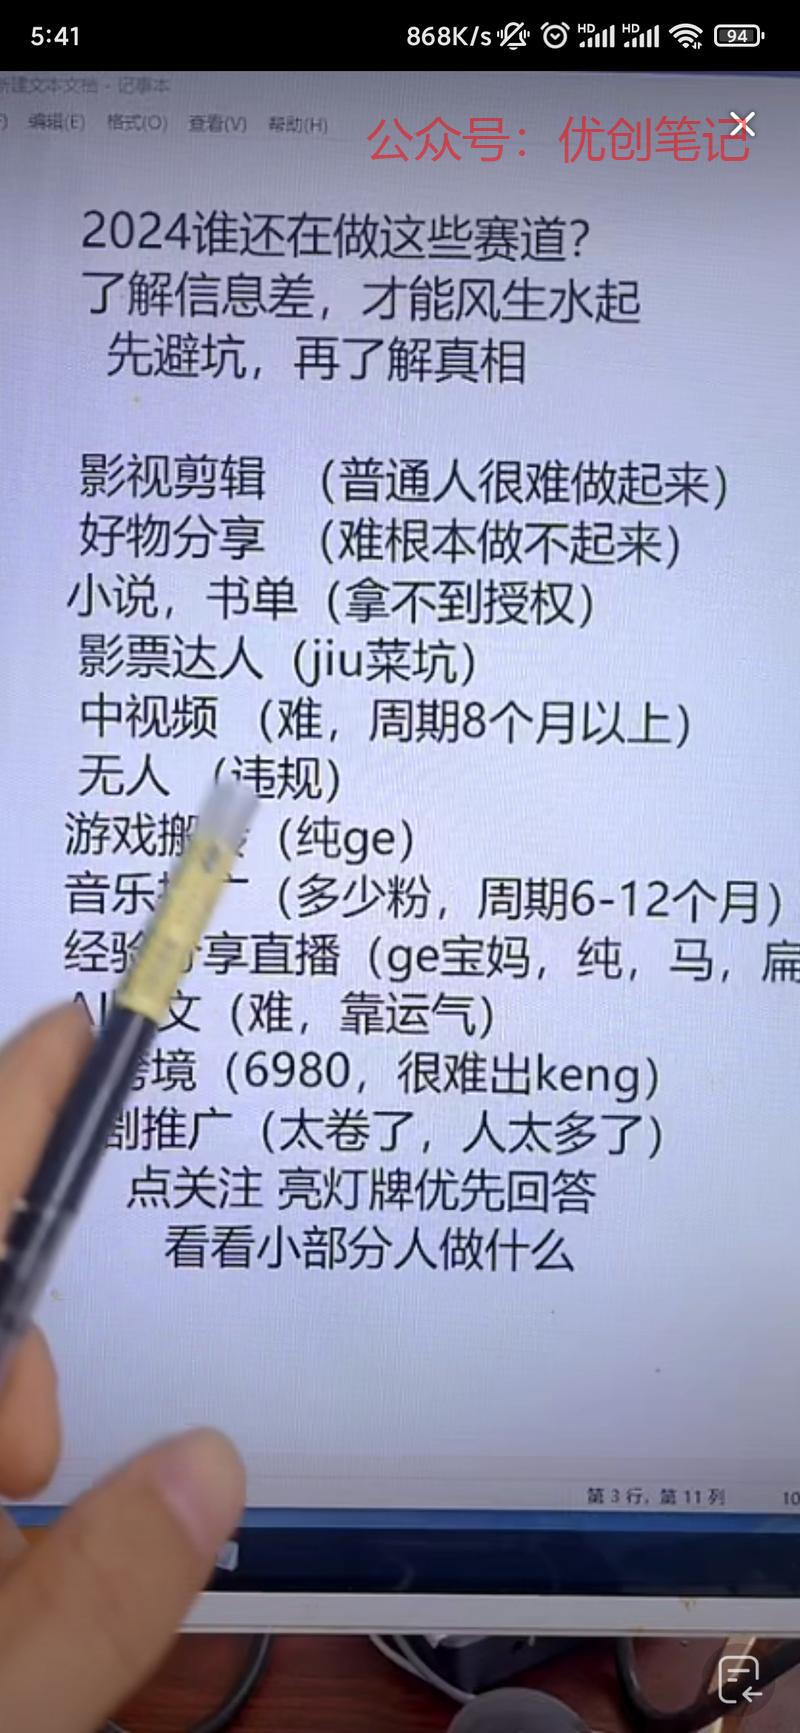 5:41
868K/s
HD
HD
94
新建文本文档 - 记事本
编辑(E) 格式(O) 查看(V) 帮助(H)
公众号：优创笔记
2024谁还在做这些赛道？
了解信息差，才能风生水起
先避坑，再了解真相
影视剪辑 （普通人很难做起来）
好物分享 （难根本做不起来）
小说，书单（拿不到授权）
影票达人（jiu菜坑）
中视频 （难，周期8个月以上）
无人 （违规）
游戏搬（纯ge）
音乐（多少粉，周期6-12个月）
经验分享直播（ge宝妈，纯，马，扁
文（难，靠运气）
境（6980，很难出keng）
剧推广（太卷了，人太多了）
点关注 亮灯牌优先回答
看看小部分人做什么
第 3 行，第 11 列
10